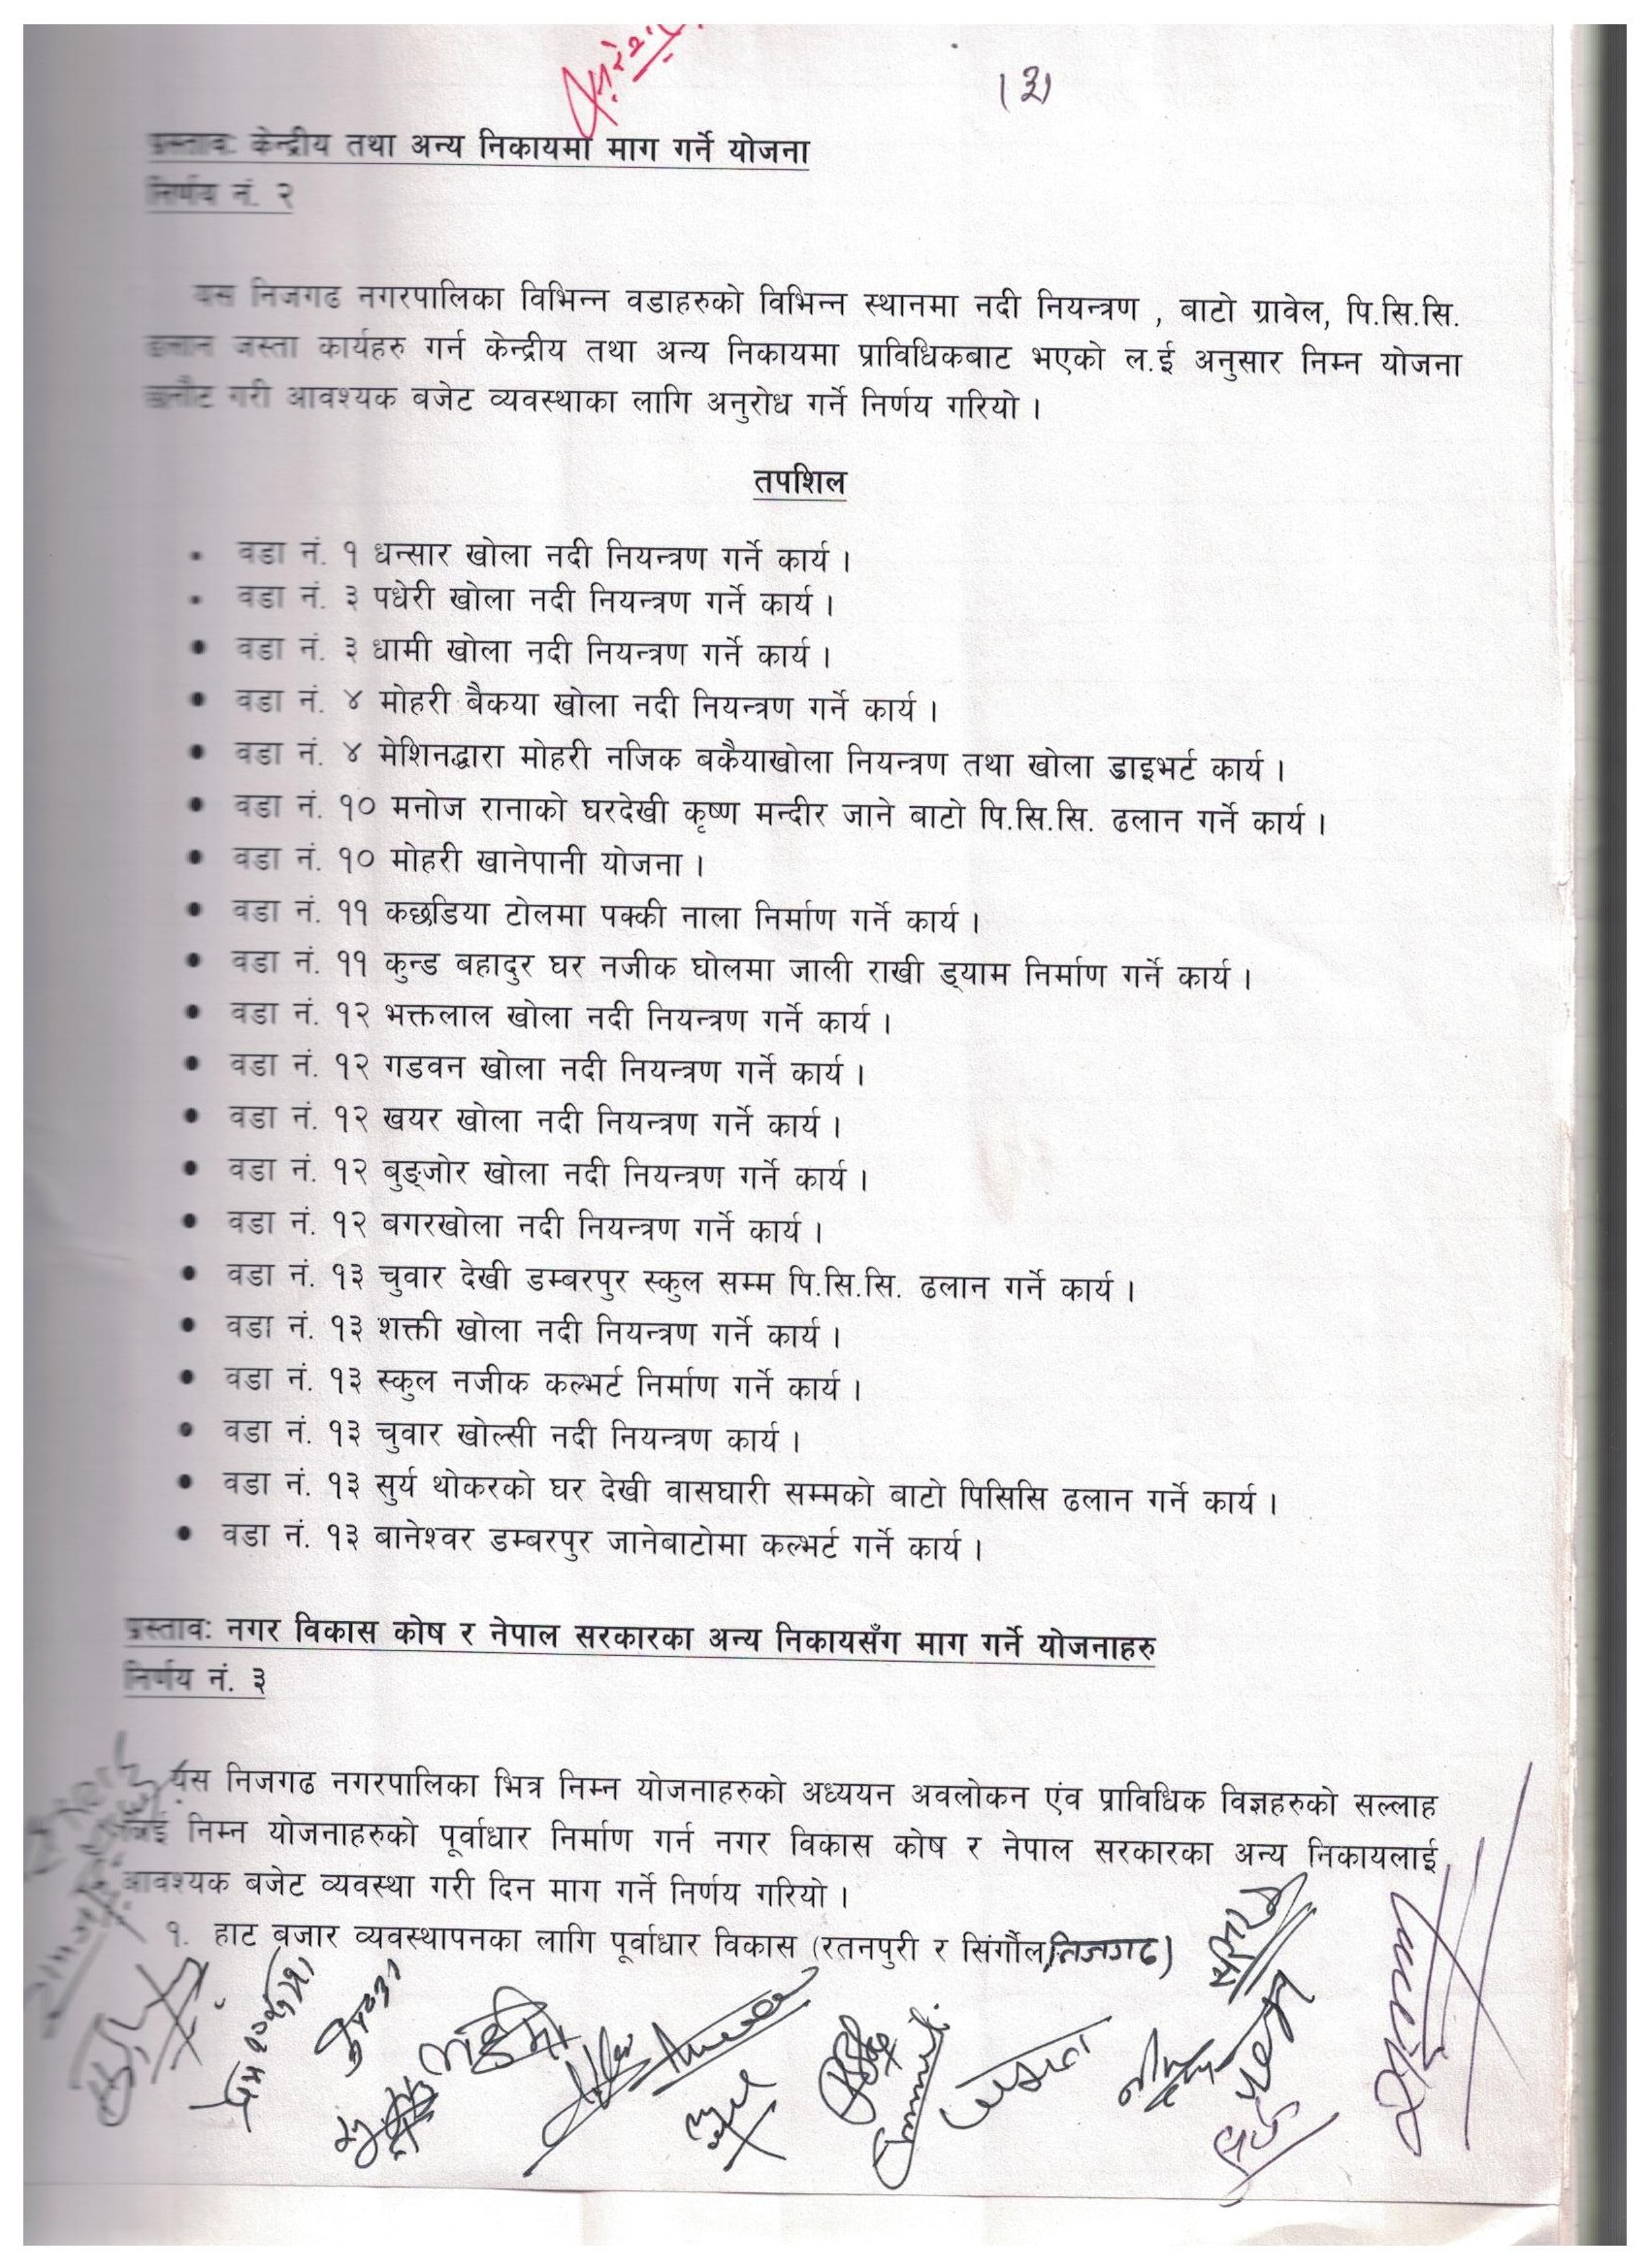 (३)
प्रस्तावः केन्द्रीय तथा अन्य निकायमा माग गर्ने योजना
निर्णय नं. २
यस निजगढ नगरपालिका विभिन्न वडाहरुको विभिन्न स्थानमा नदी नियन्त्रण , बाटो ग्रावेल, पि.सि.सि.
ढलान जस्ता कार्यहरु गर्न केन्द्रीय तथा अन्य निकायमा प्राविधिकबाट भएको ल.ई अनुसार निम्न योजना
छनौट गरी आवश्यक बजेट व्यवस्थाका लागि अनुरोध गर्ने निर्णय गरियो ।
तपशिल
• वडा नं. १ धन्सार खोला नदी नियन्त्रण गर्ने कार्य ।
• वडा नं. ३ पधेरी खोला नदी नियन्त्रण गर्ने कार्य ।
• वडा नं. ३ धामी खोला नदी नियन्त्रण गर्ने कार्य ।
• वडा नं. ४ मोहरी बैकया खोला नदी नियन्त्रण गर्ने कार्य ।
• वडा नं. ४ मेशिनद्धारा मोहरी नजिक बकैयाखोला नियन्त्रण तथा खोला डाइभर्ट कार्य ।
• वडा नं. १० मनोज रानाको घरदेखी कृष्ण मन्दीर जाने बाटो पि.सि.सि. ढलान गर्ने कार्य ।
• वडा नं. १० मोहरी खानेपानी योजना ।
• वडा नं. ११ कछडिया टोलमा पक्की नाला निर्माण गर्ने कार्य ।
• वडा नं. ११ कुन्ड बहादुर घर नजीक घोलमा जाली राखी ड्याम निर्माण गर्ने कार्य ।
• वडा नं. १२ भक्तलाल खोला नदी नियन्त्रण गर्ने कार्य ।
• वडा नं. १२ गडवन खोला नदी नियन्त्रण गर्ने कार्य ।
• वडा नं. १२ खयर खोला नदी नियन्त्रण गर्ने कार्य ।
• वडा नं. १२ बुङ्जोर खोला नदी नियन्त्रण गर्ने कार्य ।
• वडा नं. १२ बगरखोला नदी नियन्त्रण गर्ने कार्य ।
• वडा नं. १३ चुवार देखी डम्बरपुर स्कुल सम्म पि.सि.सि. ढलान गर्ने कार्य ।
• वडा नं. १३ शक्ती खोला नदी नियन्त्रण गर्ने कार्य ।
• वडा नं. १३ स्कुल नजीक कल्भर्ट निर्माण गर्ने कार्य ।
• वडा नं. १३ चुवार खोल्सी नदी नियन्त्रण कार्य ।
• वडा नं. १३ सुर्य थोकरको घर देखी वासघारी सम्मको बाटो पिसिसि ढलान गर्ने कार्य ।
• वडा नं. १३ बानेश्वर डम्बरपुर जानेबाटोमा कल्भर्ट गर्ने कार्य ।
प्रस्तावः नगर विकास कोष र नेपाल सरकारका अन्य निकायसँग माग गर्ने योजनाहरु
निर्णय नं. ३
यस निजगढ नगरपालिका भित्र निम्न योजनाहरुको अध्ययन अवलोकन एंव प्राविधिक विज्ञहरुको सल्लाह
लिई निम्न योजनाहरुको पूर्वाधार निर्माण गर्न नगर विकास कोष र नेपाल सरकारका अन्य निकायलाई
आवश्यक बजेट व्यवस्था गरी दिन माग गर्ने निर्णय गरियो ।
१. हाट बजार व्यवस्थापनका लागि पूर्वाधार विकास (रतनपुरी र सिंगौल,निजगढ)